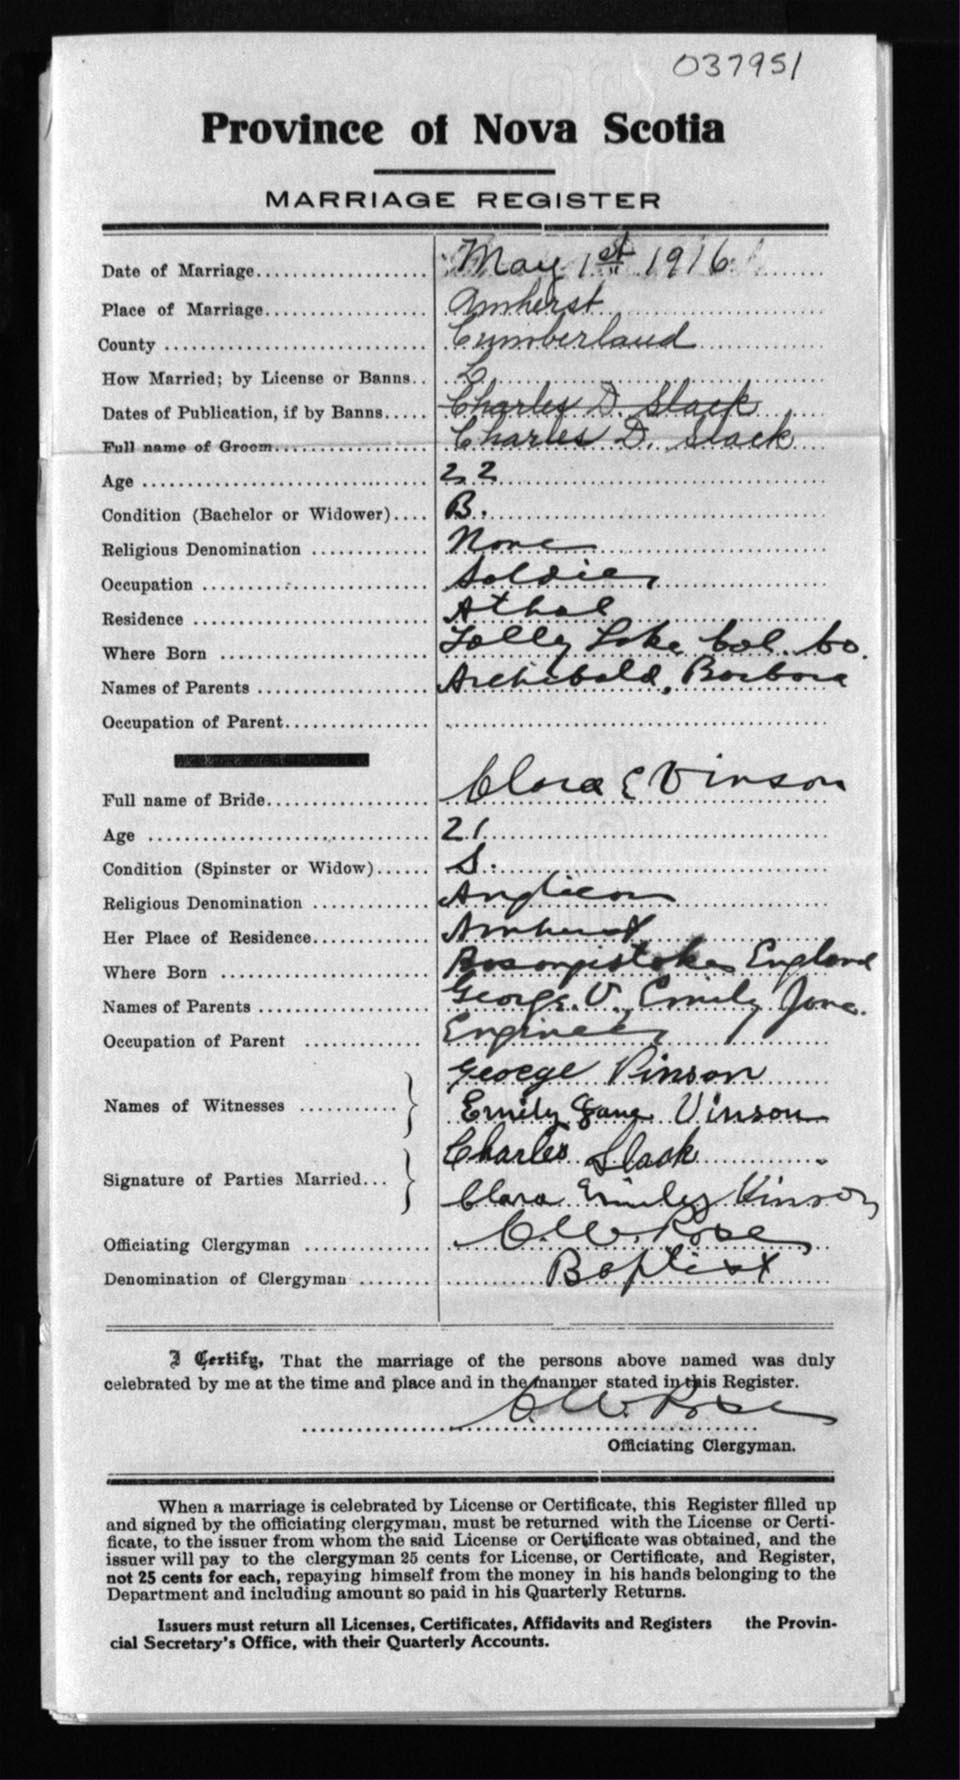 037951
Province of Nova Scotia
MARRIAGE REGISTER
Date of Marriage.................. May 1st 1916
Place of Marriage.................. Amherst
County .................. Cumberland
How Married; by License or Banns.. L
Dates of Publication, if by Banns..... Charles D. Slack
Full name of Groom.................. Charles D. Slack
Age .................. 22
Condition (Bachelor or Widower).... B.
Religious Denomination ............. None
Occupation .................. Soldier
Residence .................. Athol
Where Born .................. Folly Lake Col. Co.
Names of Parents .................. Archibald, Barbara
Occupation of Parent..................
Full name of Bride.................. Clara E Vinson
Age .................. 21
Condition (Spinster or Widow)...... S.
Religious Denomination ............. Anglican
Her Place of Residence............. Amherst
Where Born .................. England
Names of Parents .................. George V. Emily Jane.
Occupation of Parent ............. Engineer
George Vinson
Names of Witnesses ........... Emily Jane Vinson
Charles Slack
Signature of Parties Married... Clara Emily Vinson
Officiating Clergyman ............. C.W. Rose
Denomination of Clergyman ........ Baptist
I Certify, That the marriage of the persons above named was duly
celebrated by me at the time and place and in the manner stated in this Register.
C.W. Rose
Officiating Clergyman.
When a marriage is celebrated by License or Certificate, this Register filled up
and signed by the officiating clergyman, must be returned with the License or Certi-
ficate, to the issuer from whom the said License or Certificate was obtained, and the
issuer will pay to the clergyman 25 cents for License, or Certificate, and Register,
not 25 cents for each, repaying himself from the money in his hands belonging to the
Department and including amount so paid in his Quarterly Returns.
Issuers must return all Licenses, Certificates, Affidavits and Registers the Provin-
cial Secretary's Office, with their Quarterly Accounts.